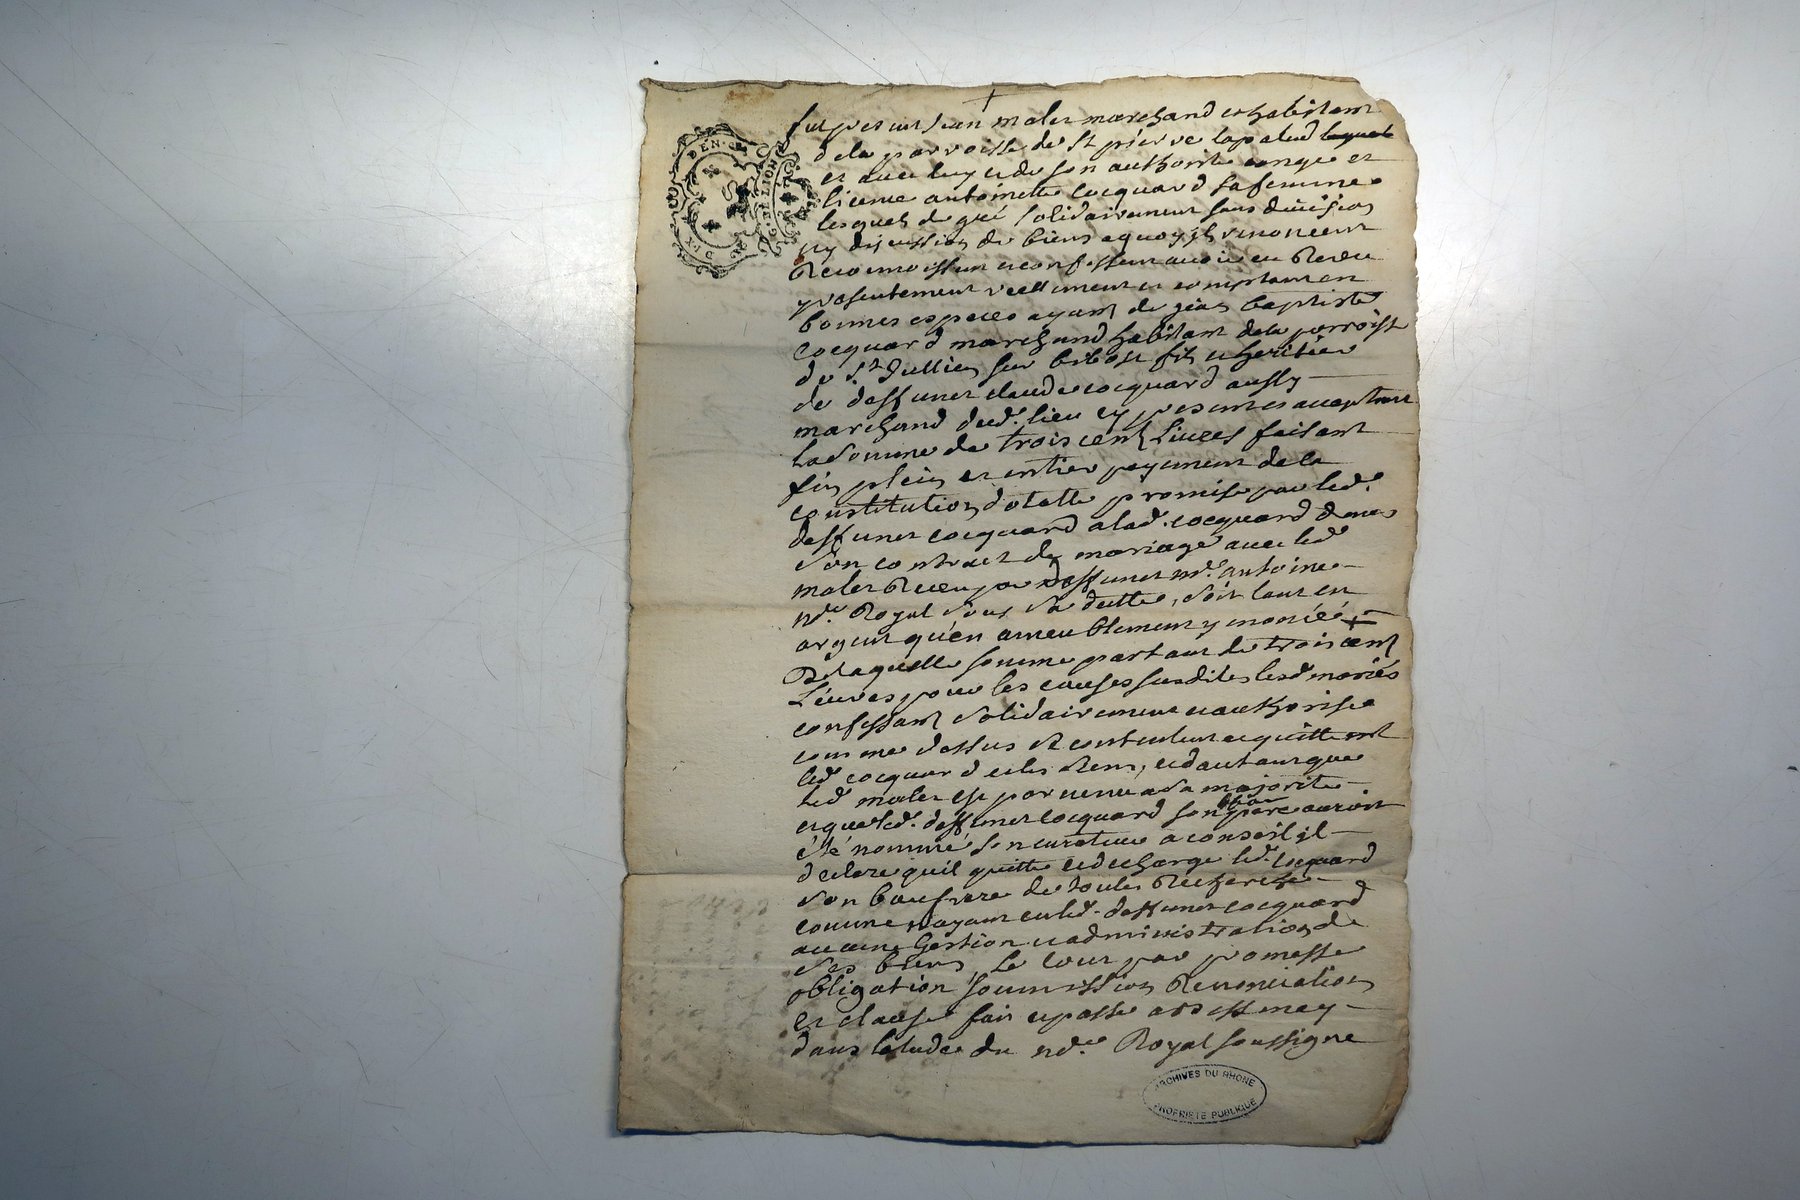 fut present Jean malet marchand et habitant
de la parroisse de St pierre lapalud lequel
et avec luy et de son authorité conge et
licence antoinette Cocquard sa femme
lesquels de gré solidairement sans division
ny discussion de biens a quoy ils renoncent
Reconnoissent et confessent avoir eu Receu
presentement reellement et comptant en
bonnes especes ayant de jean baptiste
Cocquard marchand habitant de la parroisse
de St Jullien sur bibost fils et heritier
de deffunct claude cocquard aussy
marchand dud. lieu cy present et acceptant
La Somme de trois cent Livres faisant
fin plein et entier payement de la
constitution dotalle promise par led.
deffunct cocquard a lad. cocquard dans
Son contract de mariage avec led
malet Receu par deffunct me. antoine
nre. Royal sous sa datte, soit tant en
argent qu'en ameublement y moniéé
De laquelle somme partant de trois cent
Livres pour les causes susdites lesd mariés
confessant solidairement et authorisée
comme dessus se contentent et quittent
led cocquard et les siens, et d'autant que
led malet est parvenu a sa majorité
et que led. deffunct Cocquard son beau pere auroit
été nommé son curateur a conseil il
declare qu'il quitte et decharge led. Cocquard
son beaufrere de toutes Recherches
comme n'ayant eu led. deffunct cocquard
aucune Gestion et administration de
ses biens, Le tout par promesse
obligation soumission Renonciation
et clause fait et passé a Bessenay
dans l'etude du nre. Royal soussigne
DEN.CE
G.LLION
ARCHIVES DU RHONE
PROPRIETE PUBLIQUE